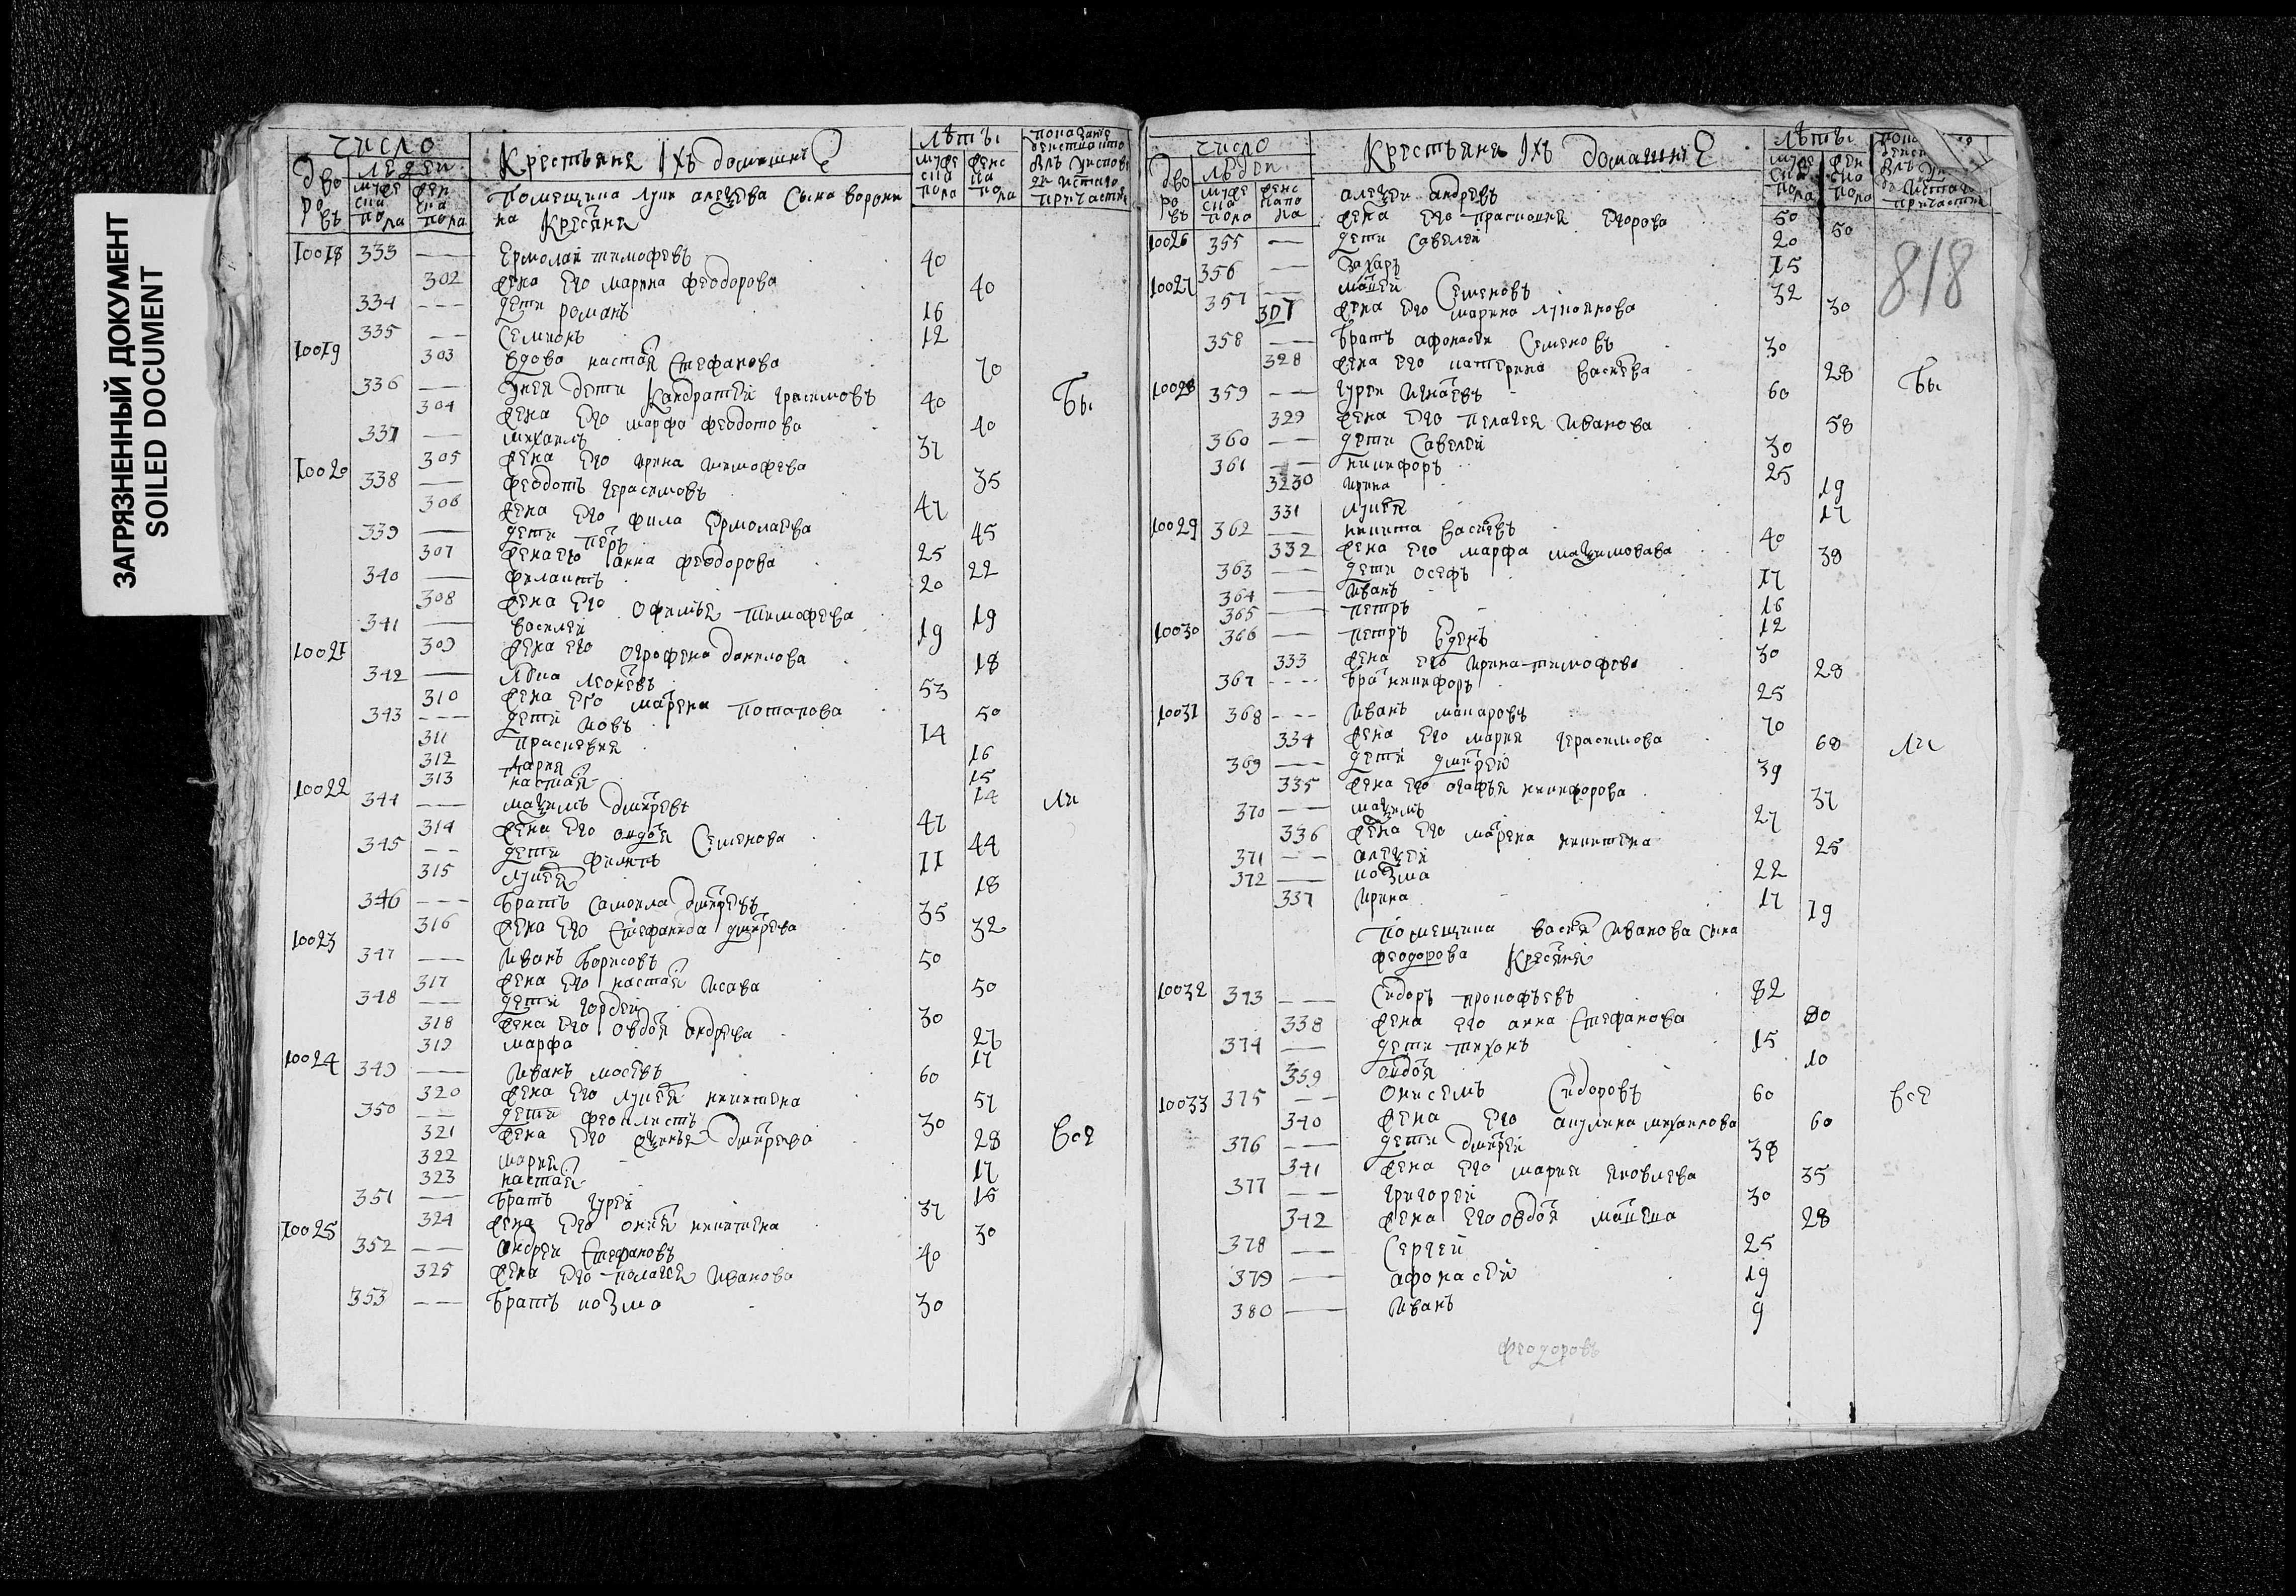 ЗАГРЯЗНЕННЫЙ ДОКУМЕНТ
SOILED DOCUMENT
число
Крестьяне Іхъ домашніе
лѣты
дворовъ
людеи
муже ска пола
женска пола
муже ска пола
женс ка пола
помещика луки алеѯева сына воронина крестяня
10018 333 — Ермолаи тимофеевъ 40
302 жена Его марина феодорова 40
334 — дети романъ 16
335 — Семионъ 12
10019 303 вдова настая Стефанова 70
336 — у нея дети Кандратеи герасимовъ 40
304 жена Его марфа феодотова 40
337 — михаилъ 37
305 жена Его ирина тимофева 35
10020 338 — феодотъ герасимовъ 47
306 жена Его фила Ермолаева 45
339 — дети петръ 25
307 жена Его анна феодорова 22
340 — филатъ 20
308 жена Его офимья тимофева 19
341 — василеи 19
309 жена Его огрофена данилова 18
10021 342 — леонтевъ 53
310 жена Его марена потапова 50
343 — дети иовъ 14
311 прасковия 16
312 дария 15
313 настая 14
10022 344 — маѯимъ дмитревъ 47
314 жена Его авдотя Семенова 44
345 — дети филипъ 11
315 лукея 18
346 — братъ самоила дмитревъ 35
316 жена Его Стефанида дмитрева 32
10023 347 — иванъ борисовъ 50
317 жена Его настая исава 50
348 — дети гордеи 30
318 жена Его овдотя андрева 27
319 марфа 17
10024 349 — иванъ мосевъ 60
320 жена Его лукея никитена 57
350 — дети феоктистъ 30
321 жена Его дмитрева 28
322 мария 17
323 настая 15
351 — братъ гурей 37
324 жена Его никитена 30
10025 352 — андреи Стефановъ 40
325 жена Его полагея иванова
353 — братъ козма 30
бы
ли
все
число
Крестьяне Іхъ домашніе
лѣты
дворовъ
людеи
муже ска пола
женс ка пола
818
алеѯеи андреевъ 50
жена Его прасковия Егорова 50
10026 355 — дети Савелеи 20
356 — захаръ 15
10027 357 — матвеи Семеновъ 32
307 жена Его марина лукоянова 30
358 — братъ афонасеи Семеновъ 30
328 жена Его катерина василева 28
10028 359 — гуреи игнатевъ 60
329 жена Его пелагея иванова 58
360 — дети Савелеи 30
361 — никифоръ 25
3230 ирина 19
331 лукея 17
10029 362 — никита василевъ 40
332 жена Его марфа маѯимовава 39
363 — дети осефъ 17
364 — иванъ 16
365 — петръ 12
10030 366 — петръ 30
333 жена Его ирина тимофева 28
367 — братъ никифоръ 25
10031 368 — иванъ макаровъ 70
334 жена Его мария герасимова 68
369 — дети дмитреи 39
335 жена Его огафья никифорова 37
370 — маѯимъ 27
336 жена Его марена никитена 25
371 — алеѯеи 22
372 — козма 17
337 ирина 19
помещика василя иванова сына
феодорова Крестяня
10032 373 — Сидоръ прокофьевъ 82
338 жена Его анна Стефанова 80
374 — дети тихонъ 15
339 авдотя 10
10033 375 — онисемъ Сидоровъ 60
340 жена Его акулина михаилова 60
376 — дети дмитреи 38
341 жена Его мария яковлева 35
377 — григореи 30
342 жена Его овдотя 28
378 — Сергеи 25
379 — афонасеи 19
380 — иванъ 9
бы
ли
все
феодоровъ